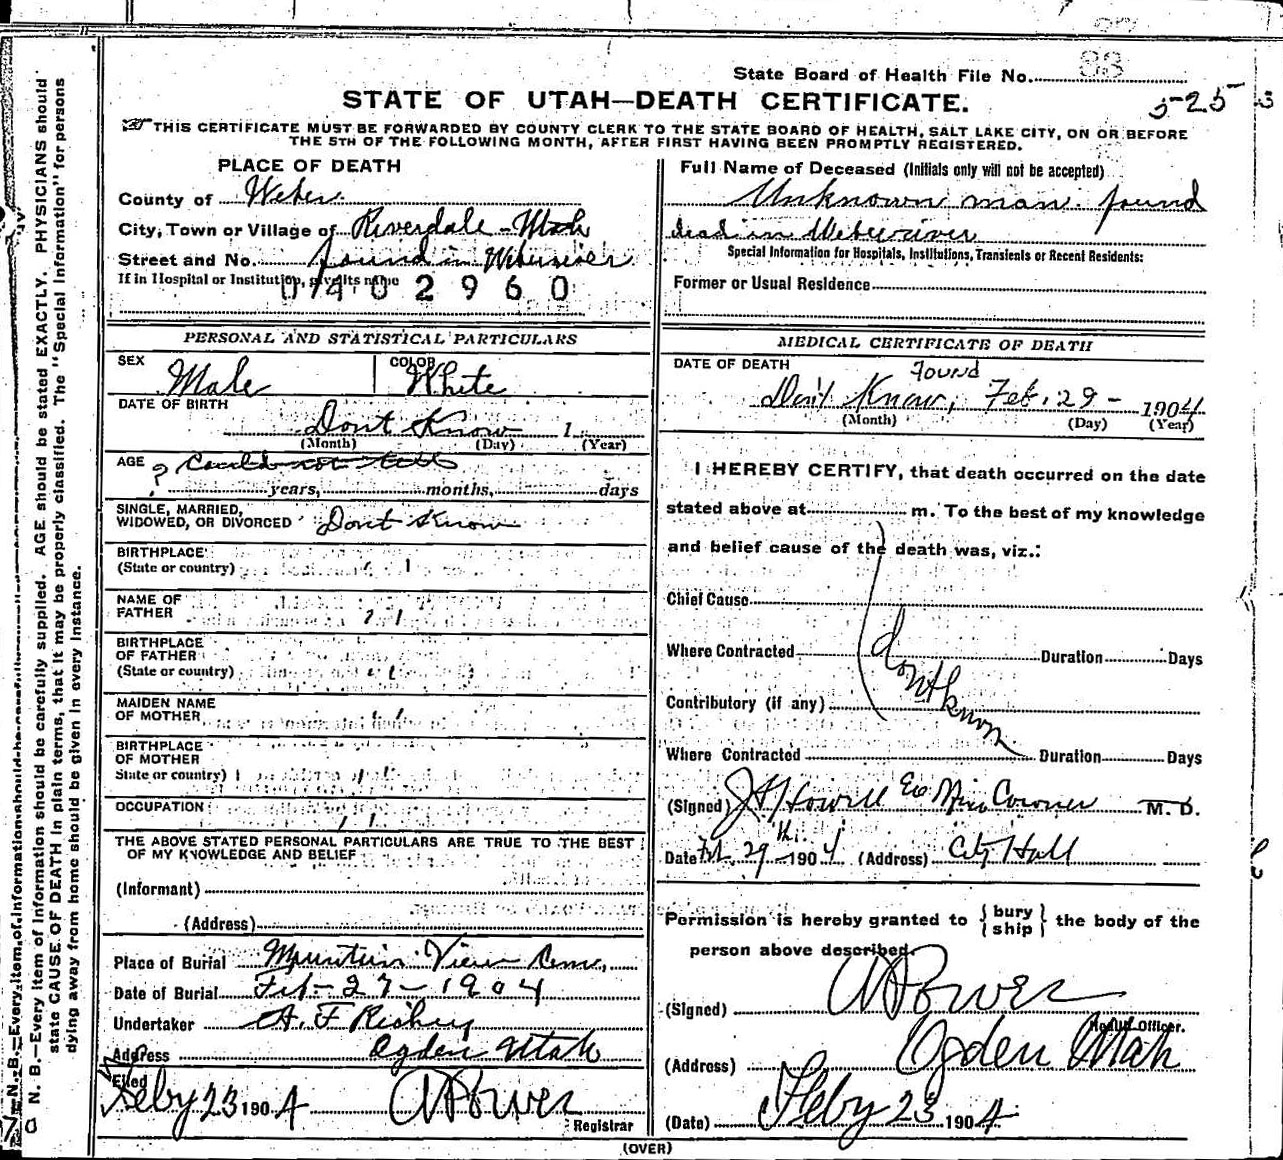 State Board of Health File No. 83
525
STATE OF UTAH—DEATH CERTIFICATE.
THIS CERTIFICATE MUST BE FORWARDED BY COUNTY CLERK TO THE STATE BOARD OF HEALTH, SALT LAKE CITY, ON OR BEFORE
THE 5TH OF THE FOLLOWING MONTH, AFTER FIRST HAVING BEEN PROMPTLY REGISTERED.
PLACE OF DEATH
County of Weber
City, Town or Village of Riverdale - Utah
Street and No. found in Weber river
If in Hospital or Institution, give its name
0402960
PERSONAL AND STATISTICAL PARTICULARS
SEX Male COLOR White
DATE OF BIRTH Dont Know 1
(Month) (Day) (Year)
AGE ? Could not tell
years, months, days
SINGLE, MARRIED,
WIDOWED, OR DIVORCED Dont Know
BIRTHPLACE
(State or country) " "
NAME OF
FATHER " "
BIRTHPLACE
OF FATHER
(State or country) " "
MAIDEN NAME
OF MOTHER " "
BIRTHPLACE
OF MOTHER
State or country) " "
OCCUPATION " "
THE ABOVE STATED PERSONAL PARTICULARS ARE TRUE TO THE BEST
OF MY KNOWLEDGE AND BELIEF
(Informant)
(Address)
Place of Burial Mountain View Cem.
Date of Burial Feb - 27 - 1904
Undertaker A. F. Richey
Address Ogden Utah
Filed
Feby 23 1904
Registrar
Full Name of Deceased (Initials only will not be accepted)
Unknown man found
dead in Weber river
Special Information for Hospitals, Institutions, Transients or Recent Residents:
Former or Usual Residence
MEDICAL CERTIFICATE OF DEATH
DATE OF DEATH Found
Don't Know, Feb. 29 - 1904
(Month) (Day) (Year)
I HEREBY CERTIFY, that death occurred on the date
stated above at m. To the best of my knowledge
and belief cause of the death was, viz.:
Chief Cause
Where Contracted Duration Days
dont know
Contributory (if any)
Where Contracted Duration Days
(Signed) J H Howell M. D.
Date Feb. 29th 1904 (Address) City Hall
Permission is hereby granted to {bury
ship} the body of the
person above described.
(Signed)
Health Officer.
(Address) Ogden Utah
(Date) Feby 23 1904
(OVER)
N. B.—Every item of information should be carefully supplied. AGE should be stated EXACTLY. PHYSICIANS should
state CAUSE OF DEATH in plain terms, that it may be properly classified. The "Special Information" for persons
dying away from home should be given in every instance.